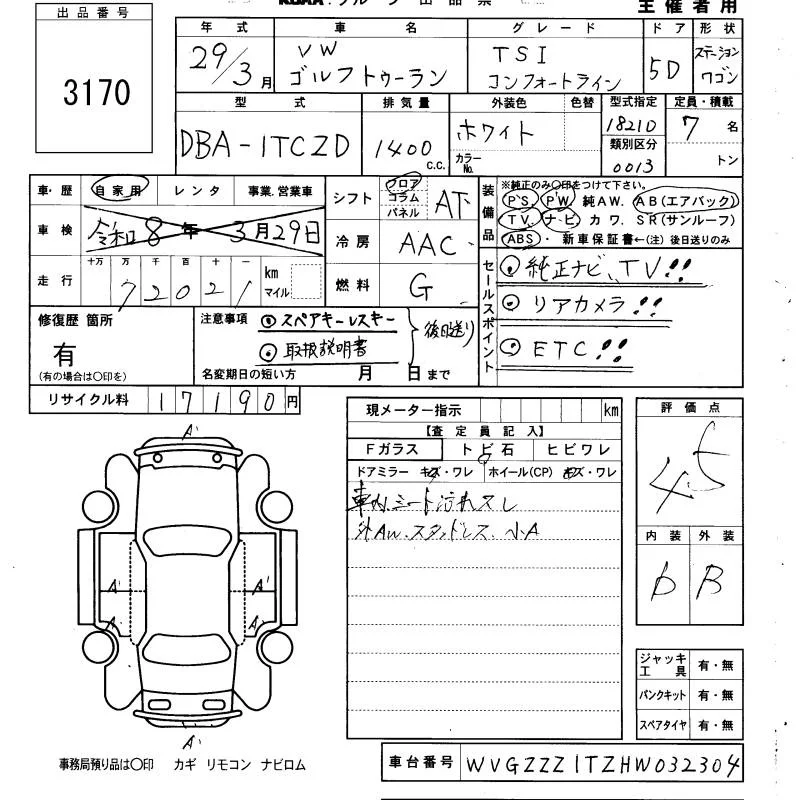 主催者用
出品番号
3170
年式 車名 グレード ドア 形状
29/3月 VW ゴルフトゥーラン TSI コンフォートライン 5D ステーションワゴン
型式 排気量 外装色 色替 型式指定 定員・積載
DBA-1TCZD 1400 C.C. ホワイト 18210 7名
カラーNo. 類別区分 0013 トン
車・歴 自家用 レンタ 事業.営業車
車検 令和8年3月29日
走行 十万 万 千 百 十 一
72021 km マイル
シフト フロア コラム パネル AT
冷房 AAC
燃料 G
装備品
※純正のみ〇印をつけて下さい。
P.S. P.W 純AW. AB(エアバック)
TV. ナ・ビ カワ. SR(サンルーフ)
ABS・ 新車保証書←(注) 後日送りのみ
セールスポイント
純正ナビ、TV!!
リアカメラ!!
ETC!!
修復歴 箇所
有
(有の場合は〇印を)
注意事項
スペアキーレスキー
取扱説明書
後日送り
名変期日の短い方 月 日まで
リサイクル料 17190円
現メーター指示 km
【査定員記入】
Fガラス トビ石 ヒビワレ
ドアミラー キズ・ワレ ホイール(CP) キズ・ワレ
車内、シート汚れスレ
外AW、スタッドレス、小A
評価点
4.5
内装 外装
B
A'
A' A'
A' A'
A'
ジャッキ工具 有・無
パンクキット 有・無
スペアタイヤ 有・無
事務局預り品は〇印 カギ リモコン ナビロム
車台番号 WVGZZZ1TZHW032304